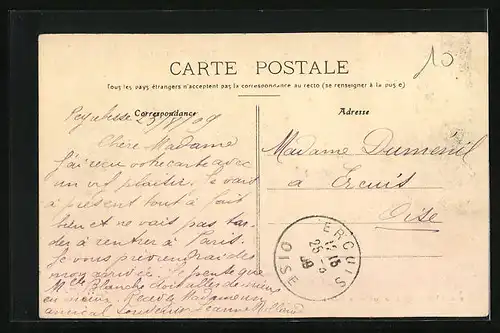 10
CARTE POSTALE
Tous les pays étrangers n'acceptent pas la correspondance au recto (se renseigner à la poste)
Correspondance
Adresse
23/8/09
Chère Madame
J'ai reçu votre carte avec
un vif plaisir. Je vais
à présent tout à fait
bien et ne vais pas tar-
der à rentrer à Paris.
Je vous préviendrai dès
mon arrivée. Je pense que
Mlle Blanche doit aller de mieux
en mieux. Recevez Madame un
amical souvenir Jeanne
Madame Dumenil
à Ercuis
Oise
ERCUIS
OISE